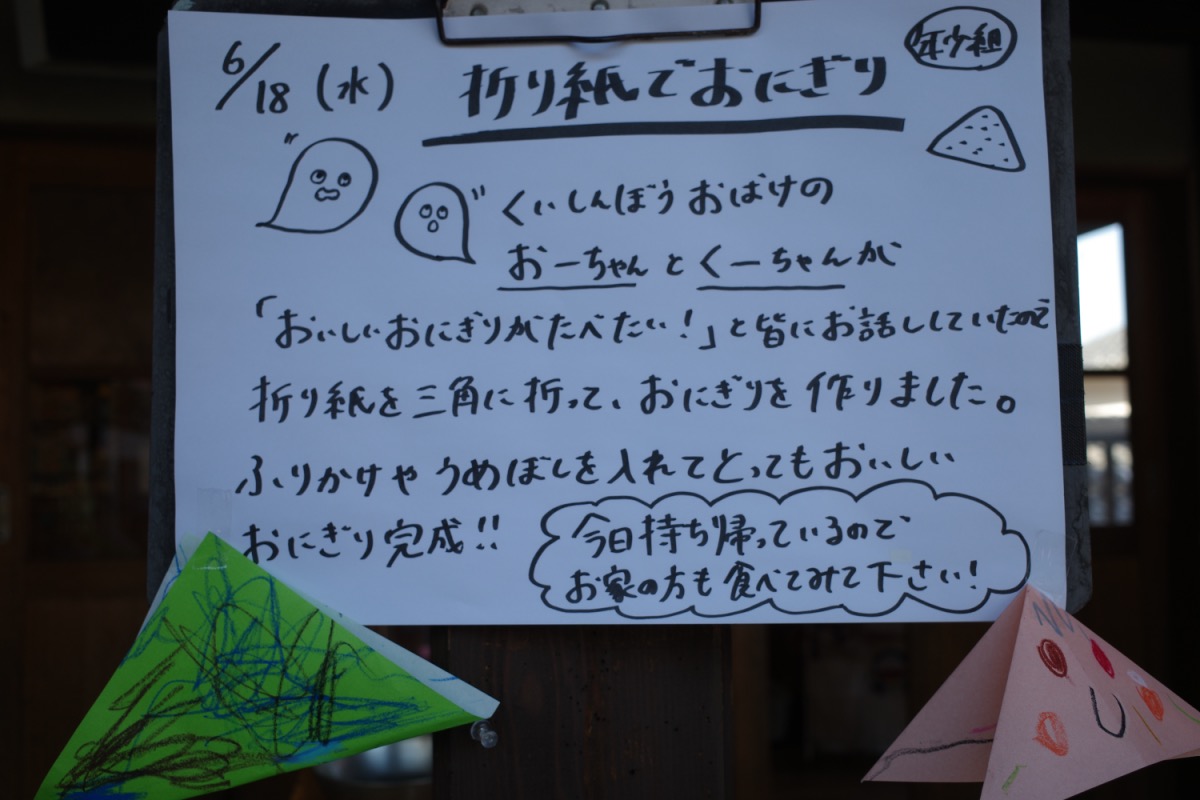 6/18(水) 折り紙でおにぎり 年少組
くいしんぼうおばけの
おーちゃんとくーちゃんが
「おいしいおにぎりがたべたい!」と皆にお話ししていたので
折り紙を三角に折って、おにぎりを作りました。
ふりかけやうめぼしを入れてとってもおいしい
おにぎり完成!!
今日持ち帰っているので
お家の方も食べてみて下さい!